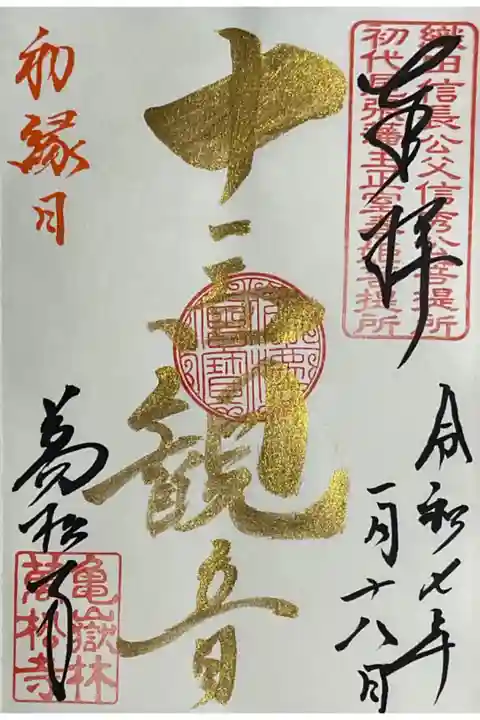 織田信長公父信秀公菩提所
初代尾張藩主正室春姫菩提所
奉拝
令和七年
一月十八日
十一面観音
初縁日
萬松寺
亀嶽林
萬松寺